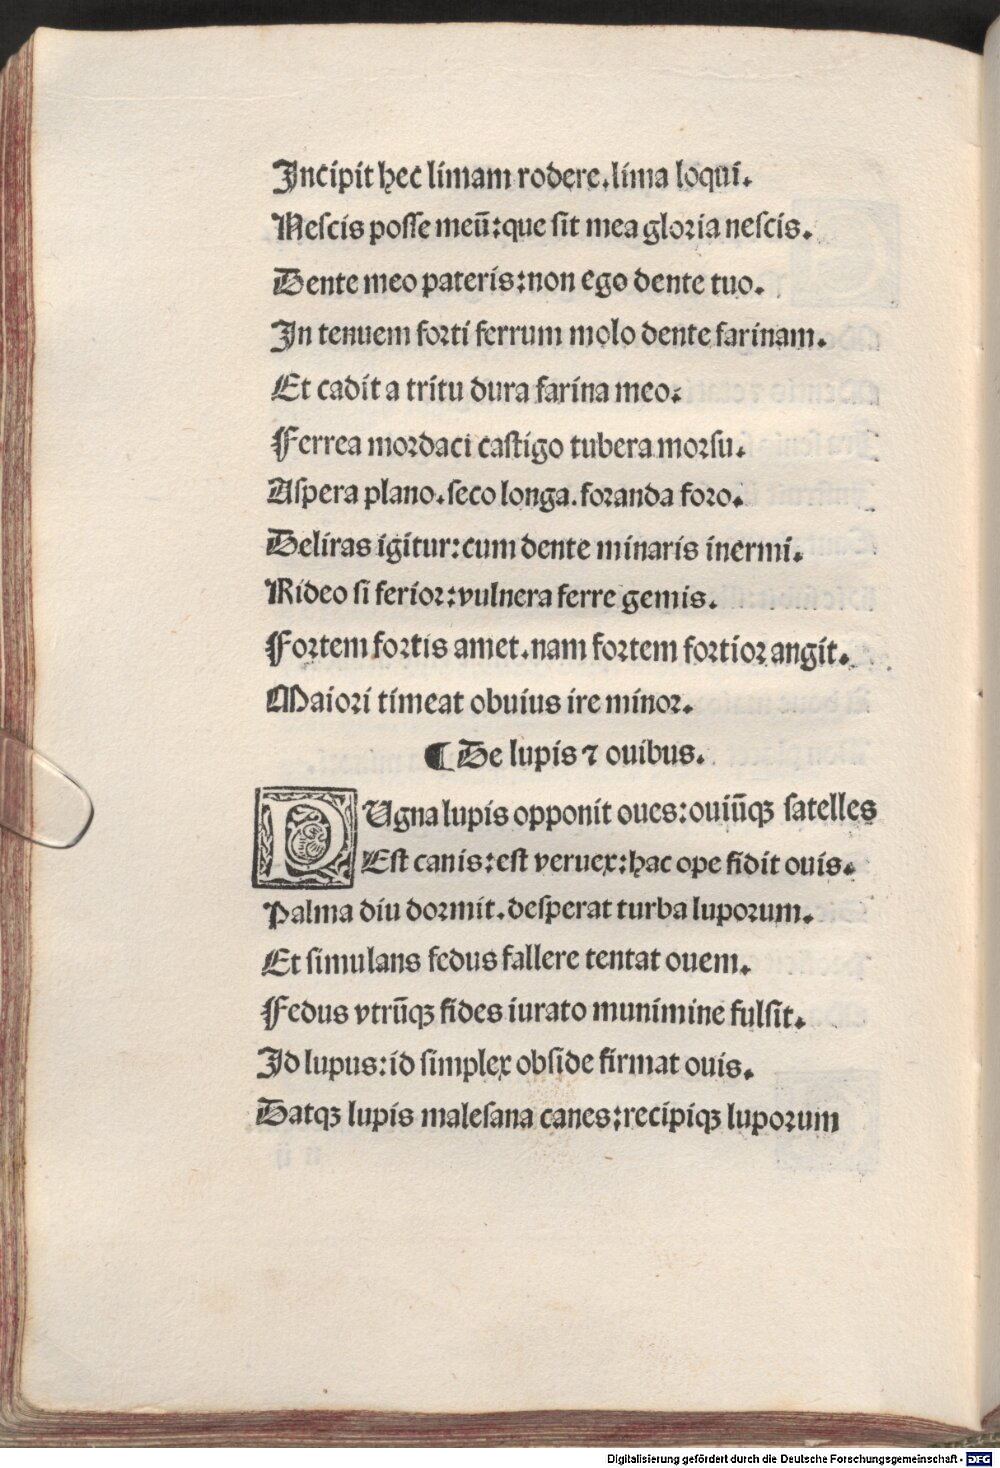 Incipit hec limam rodere.lima loqui.
Neſcis poſſe meū:que ſit mea gloꝛia neſcis.
Dente meo pateris:non ego dente tuo.
In tenuem foꝛti ferrum molo dente farinam.
Et cadit a tritu dura farina meo.
Ferrea moꝛdaci caſtigo tubera moꝛſu.
Aſpera plano.ſeco longa.foꝛanda foro.
Deliras igitur:cum dente minaris inermi.
Rideo ſi ferioꝛ:vulnera ferre gemis.
Foꝛtem foꝛtis amet.nam foꝛtem foꝛtioꝛ angit.
Maioꝛi timeat obuius ire minoꝛ.
¶ De lupis ⁊ ouibus.
PUgna lupis opponit oues:ouiūqꝫ ſatelles
Eſt canis:eſt veruex:hac ope fidit ouis.
Palma diu doꝛmit.deſperat turba lupoꝛum.
Et ſimulans fedus fallere tentat ouem.
Fedus vtrūqꝫ fides iurato munimine fulſit.
Id lupus:id ſimplex obſide firmat ouis.
Datqꝫ lupis maleſana canes:recipiqꝫ lupoꝛum
Digitalisierung gefördert durch die Deutsche Forschungsgemeinschaft - DFG